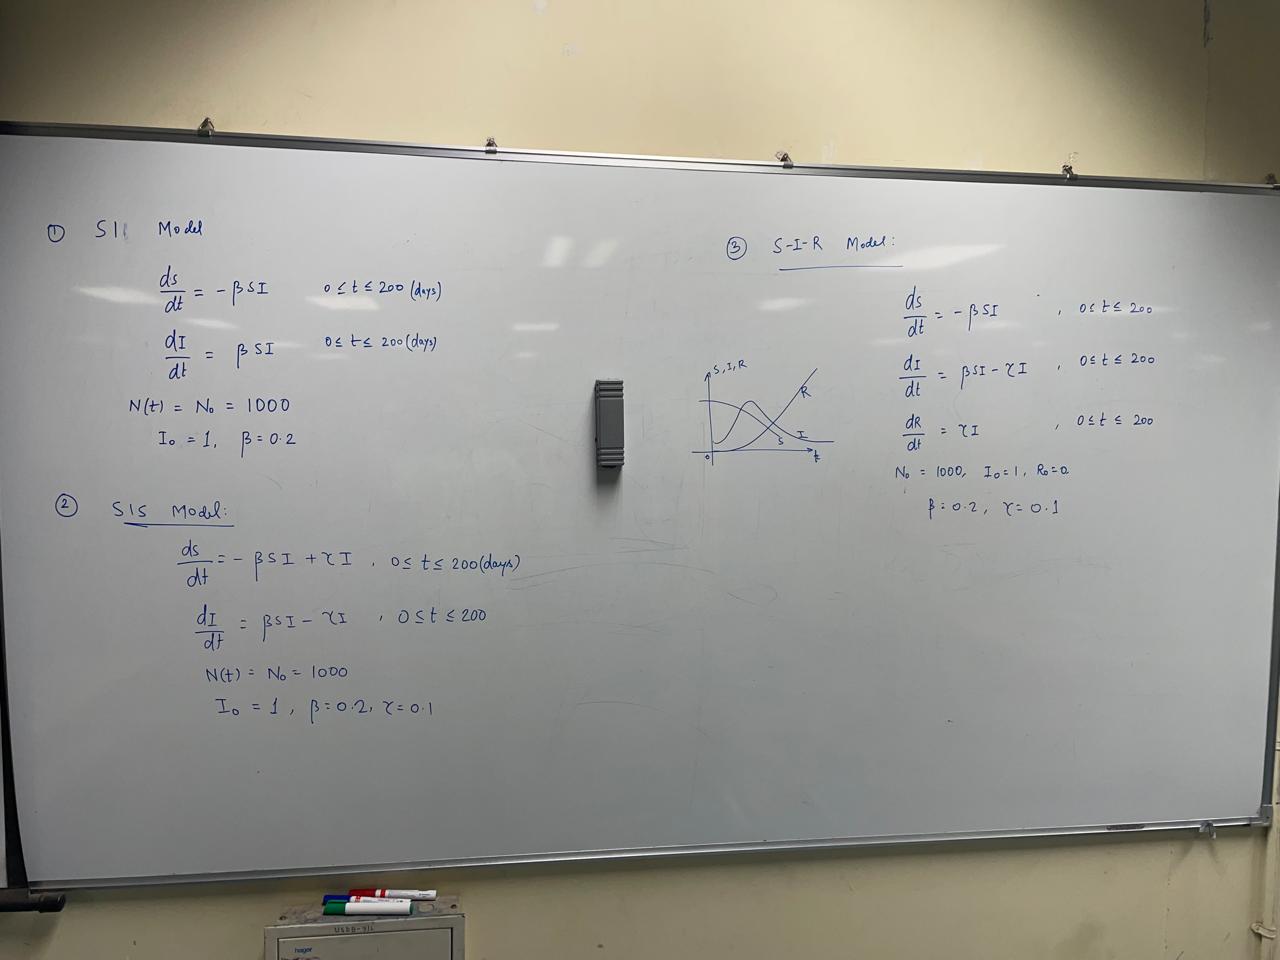 ① SI Model
ds/dt = - β S I    0 ≤ t ≤ 200 (days)
dI/dt = β S I    0 ≤ t ≤ 200 (days)
N(t) = N₀ = 1000
I₀ = 1, β = 0.2
② SIS Model:
ds/dt = - β S I + γ I , 0 ≤ t ≤ 200 (days)
dI/dt = β S I - γ I , 0 ≤ t ≤ 200
N(t) = N₀ = 1000
I₀ = 1, β = 0.2, γ = 0.1
③ S-I-R Model:
ds/dt = - β S I , 0 ≤ t ≤ 200
dI/dt = β S I - γ I , 0 ≤ t ≤ 200
dR/dt = γ I , 0 ≤ t ≤ 200
N₀ = 1000, I₀ = 1, R₀ = 0
β = 0.2, γ = 0.1
S, I, R
R
I
S
0
t
hager